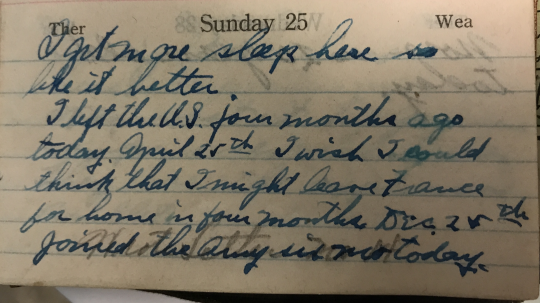 Ther Sunday 25 Wea
I get more sleep here so
like it better.
I left the U.S. four months ago
today. April 25th I wish I could
think that I might leave France
for home in four months Dec. 25th
joined the Army six mo today.